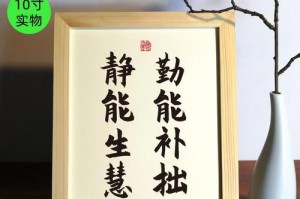 10寸
实物
勤能补拙
静能生慧